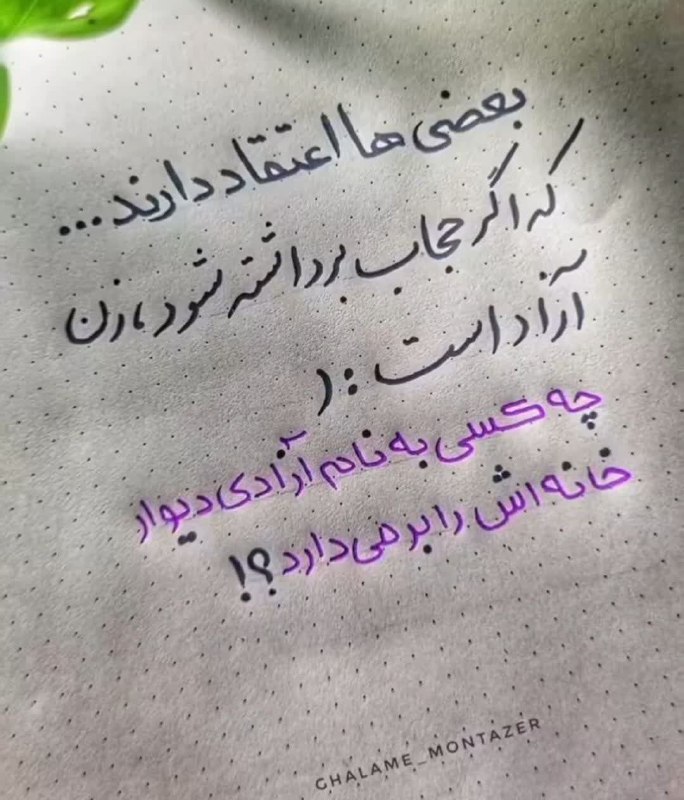 بعضی ها اعتقاد دارند...
که اگر حجاب برداشته شود، زن
آزاد است :(
چه کسی به نام آزادی دیوار
خانه اش را بر می دارد ؟!
GHALAME_MONTAZER